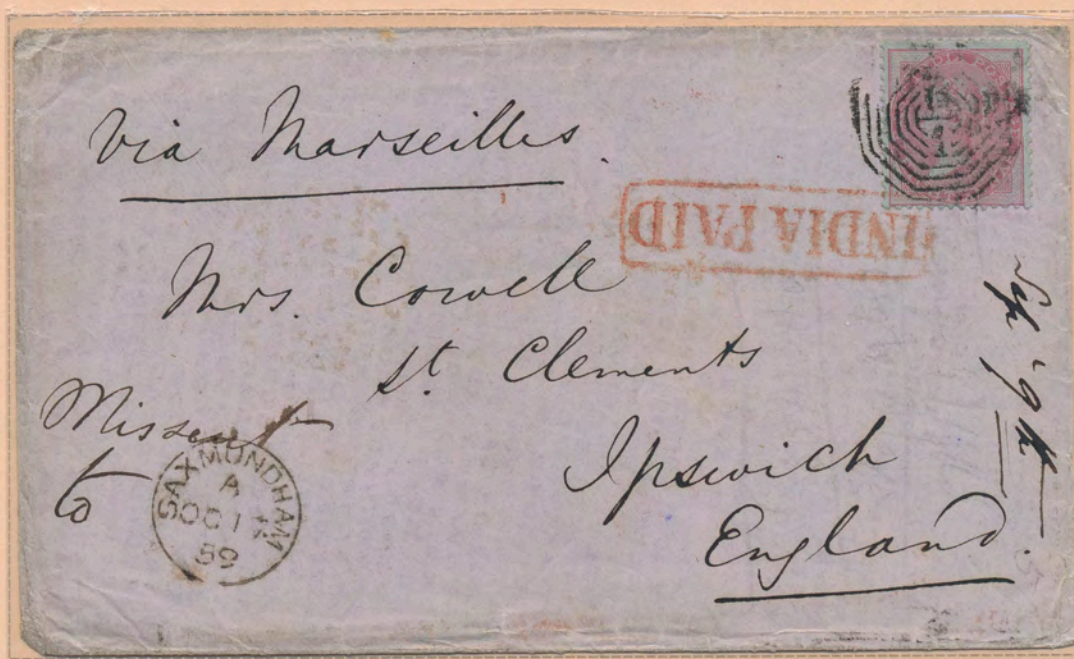 via Marseilles.
INDIA PAID
Mrs. Cowell
St. Clements
Ipswich
England.
Missent
to
SAXMUNDHAM
A
OC 1
59